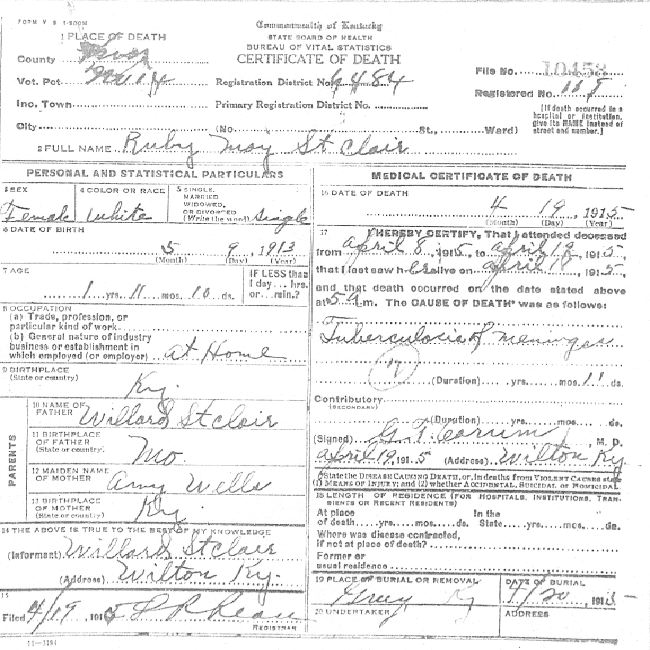 FORM V S 1-500M
Commonwealth of Kentucky
STATE BOARD OF HEALTH
BUREAU OF VITAL STATISTICS
CERTIFICATE OF DEATH
1 PLACE OF DEATH
County Knox
Vot. Pct
Inc. Town
City (No. St., Ward)
Registration District No. 6484
Primary Registration District No.
File No. 10453
Registered No.
[If death occurred in a hospital or institution, give its NAME instead of street and number.]
2 FULL NAME Ruby May St Clair
PERSONAL AND STATISTICAL PARTICULARS
3 SEX Female
4 COLOR OR RACE white
5 SINGLE, MARRIED WIDOWED, OR DIVORCED (Write the word) Single
6 DATE OF BIRTH
5 9, 1913
(Month) (Day) (Year)
7 AGE
1 yrs. 11 mos. 10 ds.
IF LESS than 1 day....hrs. or....min.?
8 OCCUPATION
(a) Trade, profession, or particular kind of work
(b) General nature of industry business or establishment in which employed (or employer) at Home
9 BIRTHPLACE (State or country) Ky.
PARENTS
10 NAME OF FATHER Willard St Clair
11 BIRTHPLACE OF FATHER (State or country) Mo
12 MAIDEN NAME OF MOTHER Amy Wells
13 BIRTHPLACE OF MOTHER (State or country) Ky.
14 THE ABOVE IS TRUE TO THE BEST OF MY KNOWLEDGE
(Informant) Willard St Clair
(Address) Wilton Ky.
15
Filed 4/19 1915
REGISTRAR
11-3184
MEDICAL CERTIFICATE OF DEATH
16 DATE OF DEATH
4 19, 1915
(Month) (Day) (Year)
17 I HEREBY CERTIFY, That I attended deceased
from April 8 1915, to April 18, 1915,
that I last saw her alive on April 18, 1915,
and that death occurred on the date stated above
at 5 a m. The CAUSE OF DEATH* was as follows:
Tuberculosis of meninges
(Duration) yrs. mos. 11 ds.
Contributory
(SECONDARY)
(Duration) yrs. mos. ds.
(Signed) M. D.
April 19, 1915 (Address) Wilton Ky
*State the DISEASE CAUSING DEATH, or, in deaths from VIOLENT CAUSES state (1) MEANS OF INJURY; and (2) whether ACCIDENTAL, SUICIDAL or HOMICIDAL
18 LENGTH OF RESIDENCE (FOR HOSPITALS, INSTITUTIONS, TRANSIENTS OR RECENT RESIDENTS)
At place of death....yrs....mos....ds. In the State....yrs....mos....ds.
Where was disease contracted, if not at place of death?
Former or usual residence
19 PLACE OF BURIAL OR REMOVAL
Ky
DATE OF BURIAL
4/20, 1915
20 UNDERTAKER
ADDRESS